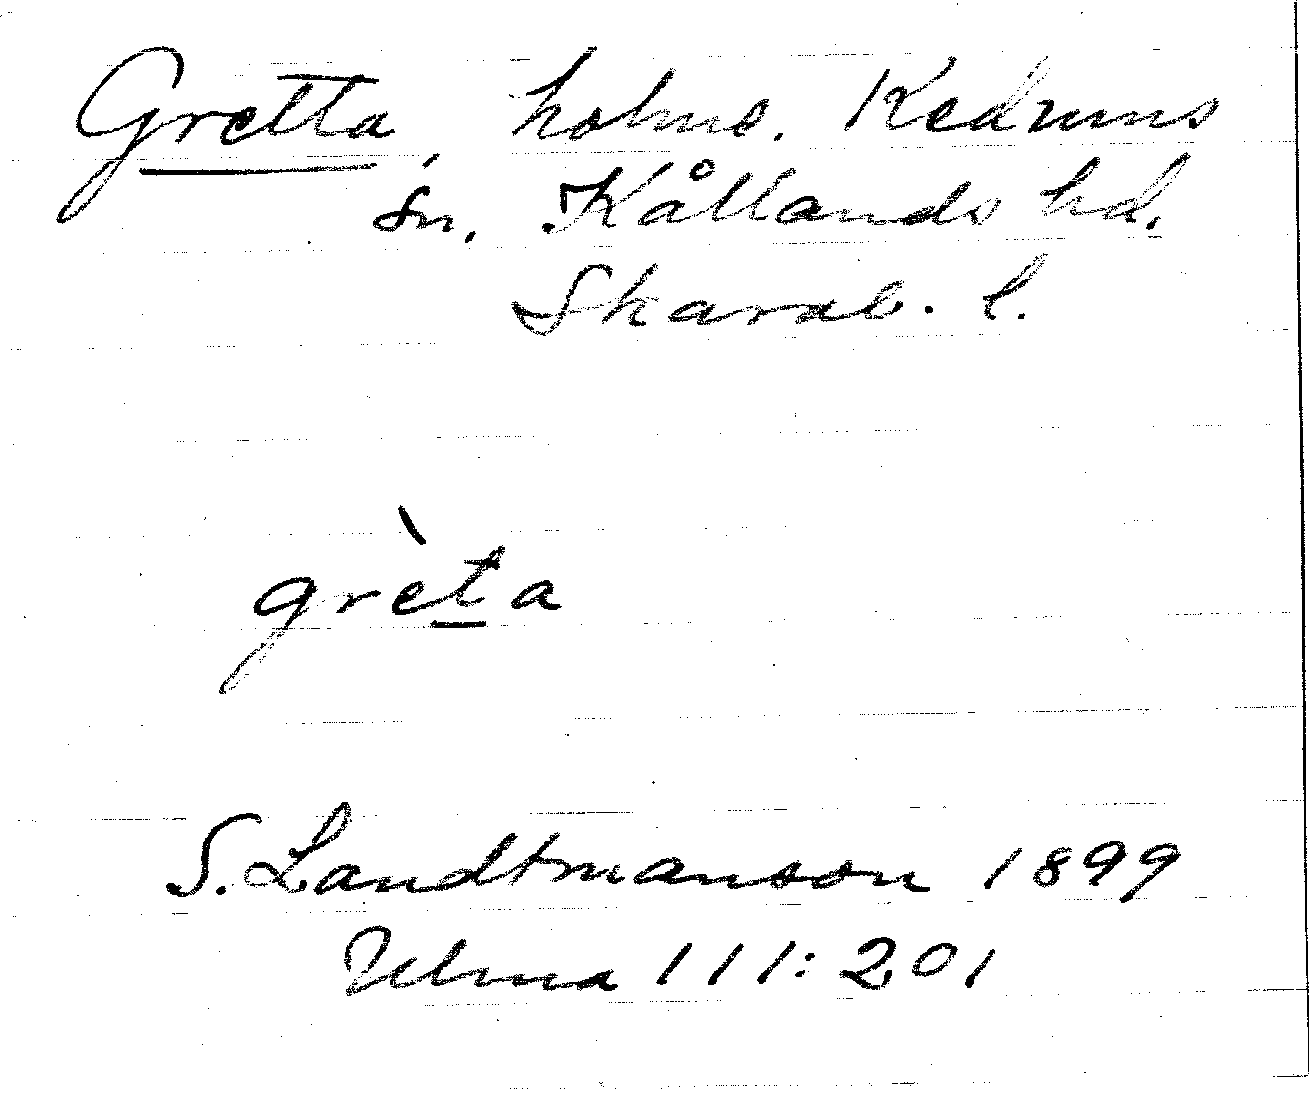 Gretta, holme. Kedums
sn. Kållands hd.
Skarab. l.
grèta
S. Landtmanson 1899
Ulma 111:201